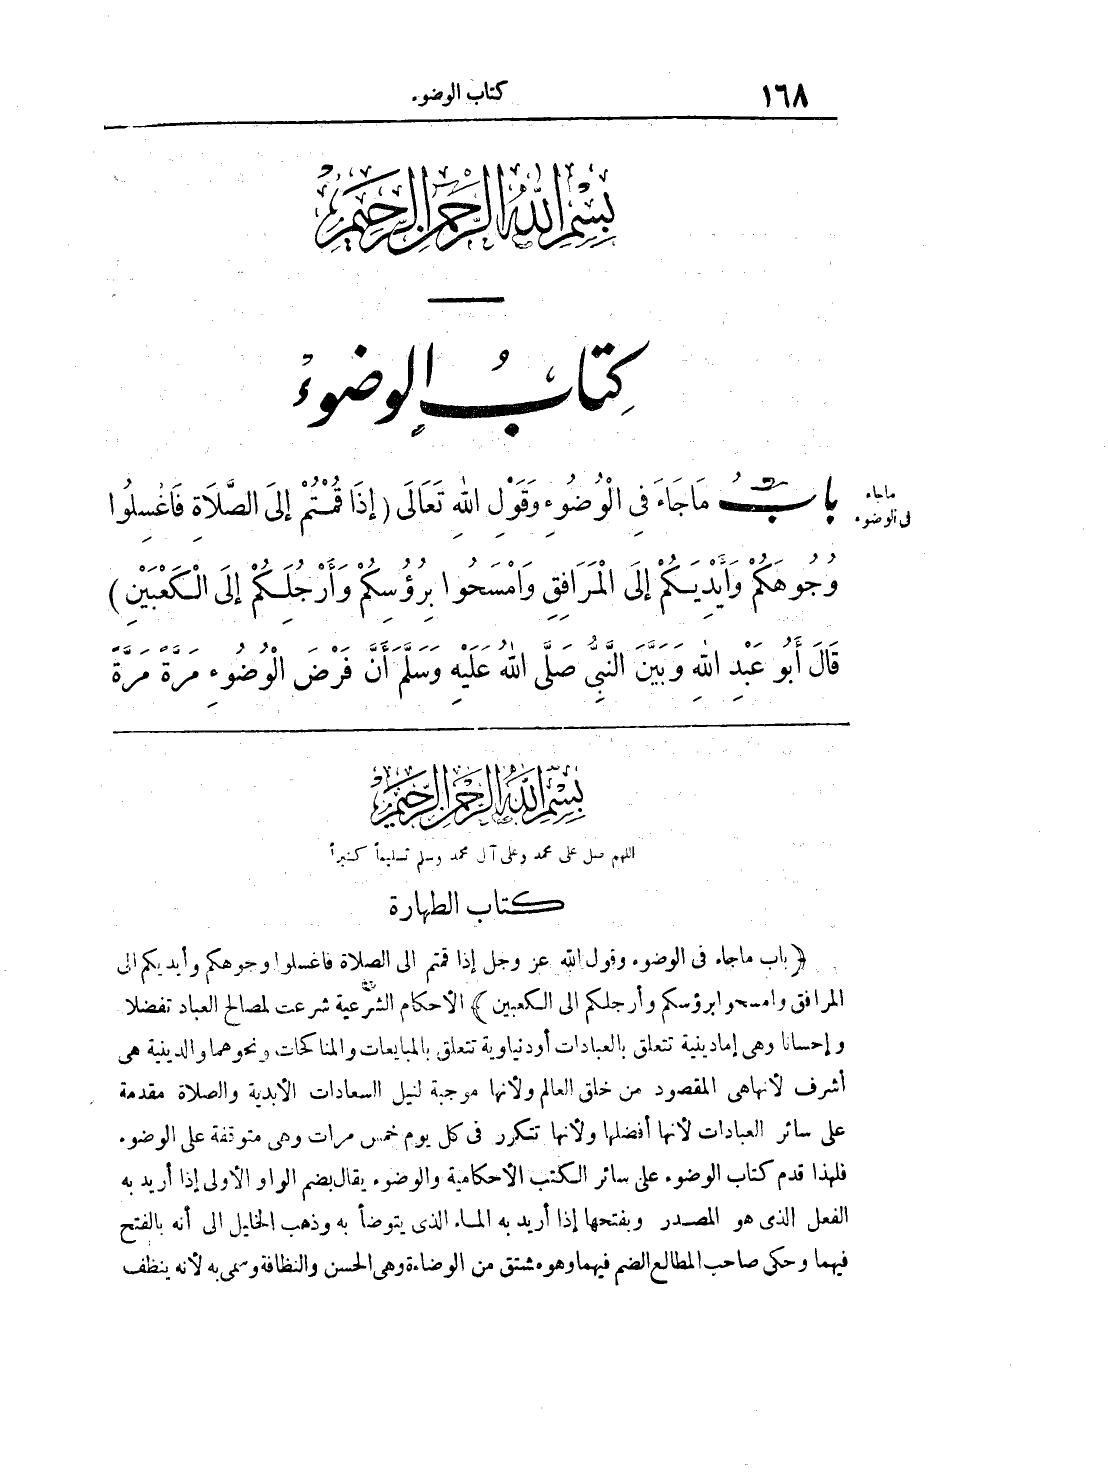 ١٦٨
كتاب الوضوء
بِسْمِ اللهِ الرَّحْمٰنِ الرَّحِيْمِ
كِتَابُ الوُضوءِ
بابُ مَاجَاءَ فِى الْوُضُوءِ وَقَوْلِ اللهِ تَعَالَى ( إذَا قُمْتُمْ إلَى الصَّلَاةِ فَاغْسِلُوا
ماجاء
فى الوضوء
وُجُوهَكُمْ وَأَيْدِيَكُمْ إلَى الْمَرَافِقِ وَامْسَحُوا بِرُؤُسِكُمْ وَأَرْجُلَكُمْ إلَى الْكَعْبَيْنِ )
قَالَ أَبُو عَبْدِ اللهِ وَبَيَّنَ النَّبِىُّ صَلَّى اللهُ عَلَيْهِ وَسَلَّمَ أَنَّ فَرْضَ الْوُضُوءِ مَرَّةً مَرَّةً
بِسْمِ اللهِ الرَّحْمٰنِ الرَّحِيْمِ
اللهم صل على محمد وعلى آل محمد وسلم تسليماً كثيراً
كتاب الطهارة
﴿ باب ماجاء فى الوضوء وقول الله عز وجل إذا قمتم الى الصلاة فاغسلوا وجوهكم وأيديكم الى
المرافق وامسحوا برؤسكم وأرجلكم الى الكعبين ﴾ الأحكام الشرعية شرعت لمصالح العباد تفضلا
وإحسانا وهى إمادينية تتعلق بالعبادات أودنياوية تتعلق بالمبايعات والمناكحات ونحوهما والدينية هى
أشرف لأنهاهى المقصود من خلق العالم ولأنها موجبة لنيل السعادات الأبدية والصلاة مقدمة
على سائر العبادات لأنها أفضلها ولأنها تتكرر فى كل يوم خمس مرات وهى متوقفة على الوضوء
فلهذا قدم كتاب الوضوء على سائر الكتب الأحكامية والوضوء يقال بضم الواو الأولى إذا أريد به
الفعل الذى هو المصدر وبفتحها إذا أريد به الماء الذى يتوضأ به وذهب الخليل الى أنه بالفتح
فيهما وحكى صاحب المطالع الضم فيهما وهو مشتق من الوضاءة وهى الحسن والنظافة وسمى به لأنه ينظف